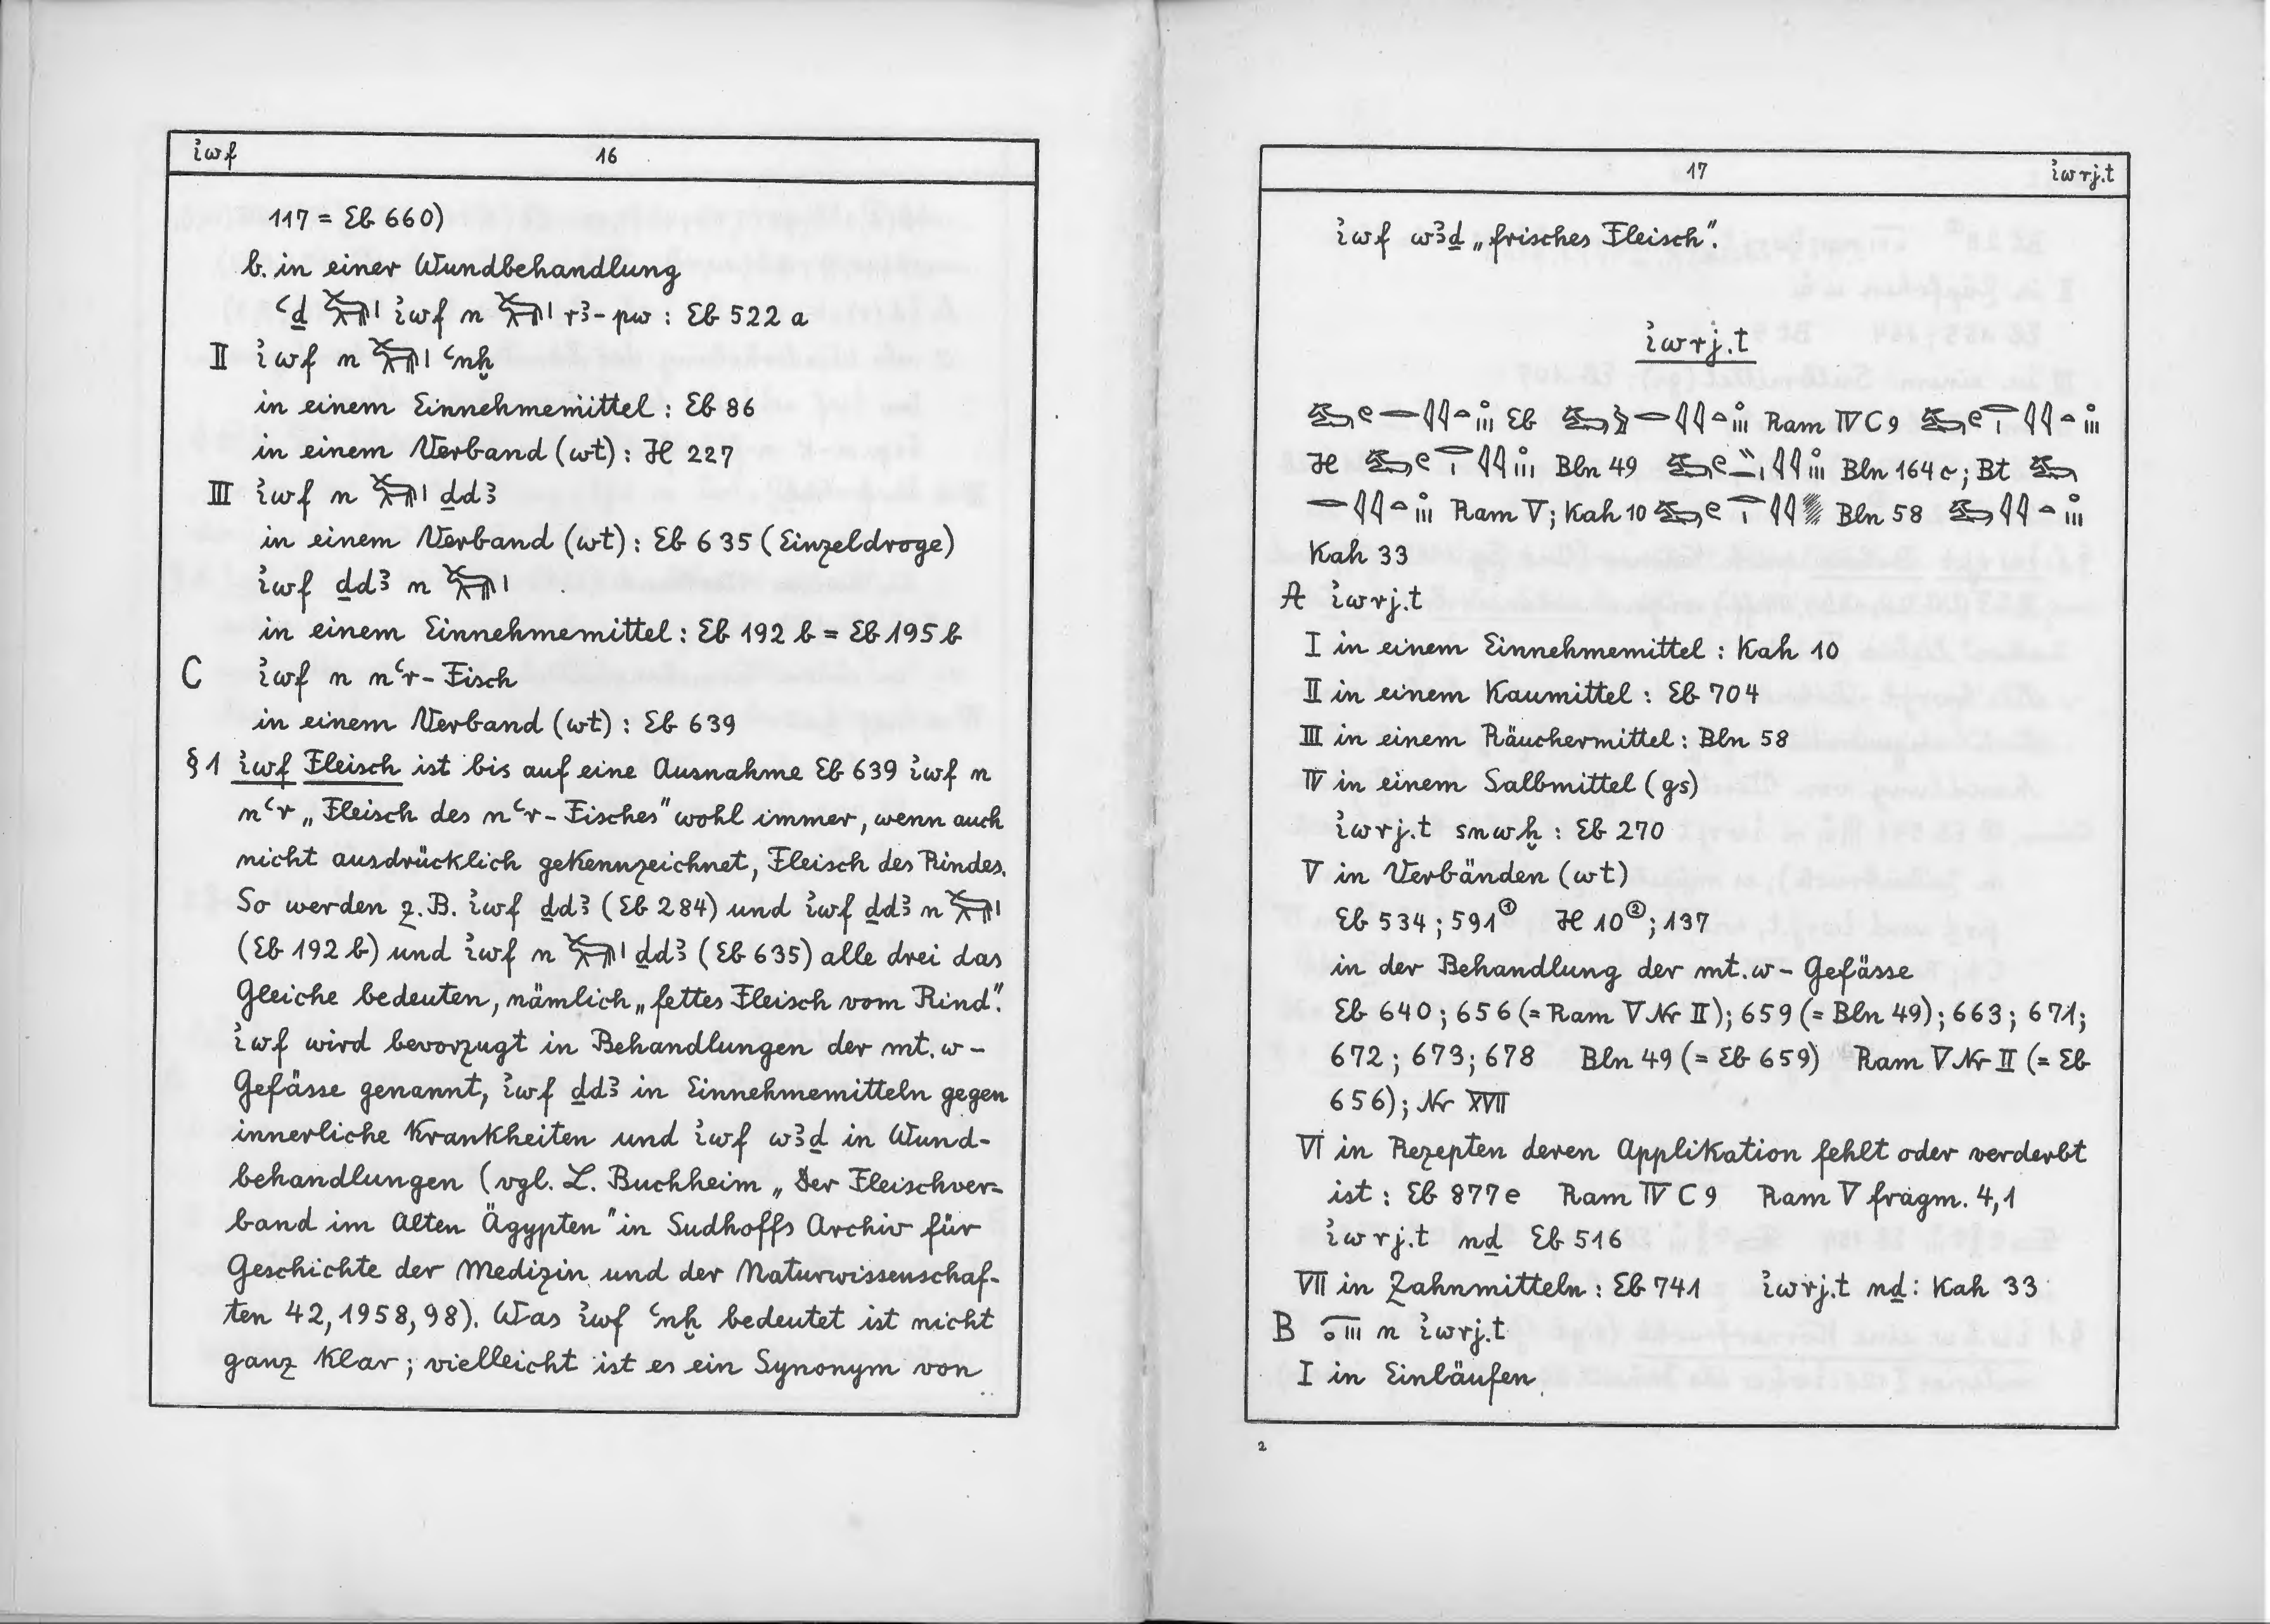 ꞽwf 16
117 = Eb 660)
b. in einer Wundbehandlung
ꜥḏ 𓃒𓏤 ꞽwf n 𓃒𓏤 rꜣ-pw : Eb 522 a
II ꞽwf n 𓃒𓏤 ꜥnḫ
in einem Einnehmemittel : Eb 86
in einem Verband (wt) : H 227
III ꞽwf n 𓃒𓏤 ḏdꜣ
in einem Verband (wt) : Eb 635 (Einzeldroge)
ꞽwf ḏdꜣ n 𓃒𓏤
in einem Einnehmemittel : Eb 192 b = Eb 195 b
C ꞽwf n nꜥr-Fisch
in einem Verband (wt) : Eb 639
§ 1 ꞽwf Fleisch ist bis auf eine Ausnahme Eb 639 ꞽwf n
nꜥr „Fleisch des nꜥr-Fisches" wohl immer, wenn auch
nicht ausdrücklich gekennzeichnet, Fleisch des Rindes.
So werden z.B. ꞽwf ḏdꜣ (Eb 284) und ꞽwf ḏdꜣ n 𓃒𓏤
(Eb 192 b) und ꞽwf n 𓃒𓏤 ḏdꜣ (Eb 635) alle drei das
Gleiche bedeuten, nämlich „fettes Fleisch vom Rind".
ꞽwf wird bevorzugt in Behandlungen der mt.w-
Gefässe genannt, ꞽwf ḏdꜣ in Einnehmemitteln gegen
innerliche Krankheiten und ꞽwf wꜣḏ in Wund-
behandlungen (vgl. L. Buchheim „Der Fleischver-
band im Alten Ägypten" in Sudhoffs Archiv für
Geschichte der Medizin und der Naturwissenschaf-
ten 42, 1958, 98). Was ꞽwf ꜥnḫ bedeutet ist nicht
ganz klar; vielleicht ist es ein Synonym von
17 ꞽwrj.t
ꞽwf wꜣḏ „frisches Fleisch".
ꞽwrj.t
Eb Ram IV C 9
H Bln 49 Bln 164 c; Bt
Ram V; Kah 10 Bln 58
Kah 33
A ꞽwrj.t
I in einem Einnehmemittel : Kah 10
II in einem Kaumittel : Eb 704
III in einem Räuchermittel : Bln 58
IV in einem Salbmittel (gs)
ꞽwrj.t snwḫ : Eb 270
V in Verbänden (wt)
Eb 534; 591① H 10②; 137
in der Behandlung der mt.w-Gefässe
Eb 640; 656 (= Ram V Nr II); 659 (= Bln 49); 663; 671;
672; 673; 678 Bln 49 (= Eb 659) Ram V Nr II (= Eb
656); Nr XVII
VI in Rezepten deren Applikation fehlt oder verderbt
ist : Eb 877 e Ram IV C 9 Ram V fragm. 4,1
ꞽwrj.t nḏ Eb 516
VII in Zahnmitteln : Eb 741 ꞽwrj.t nḏ : Kah 33
B n ꞽwrj.t
I in Einläufen
2